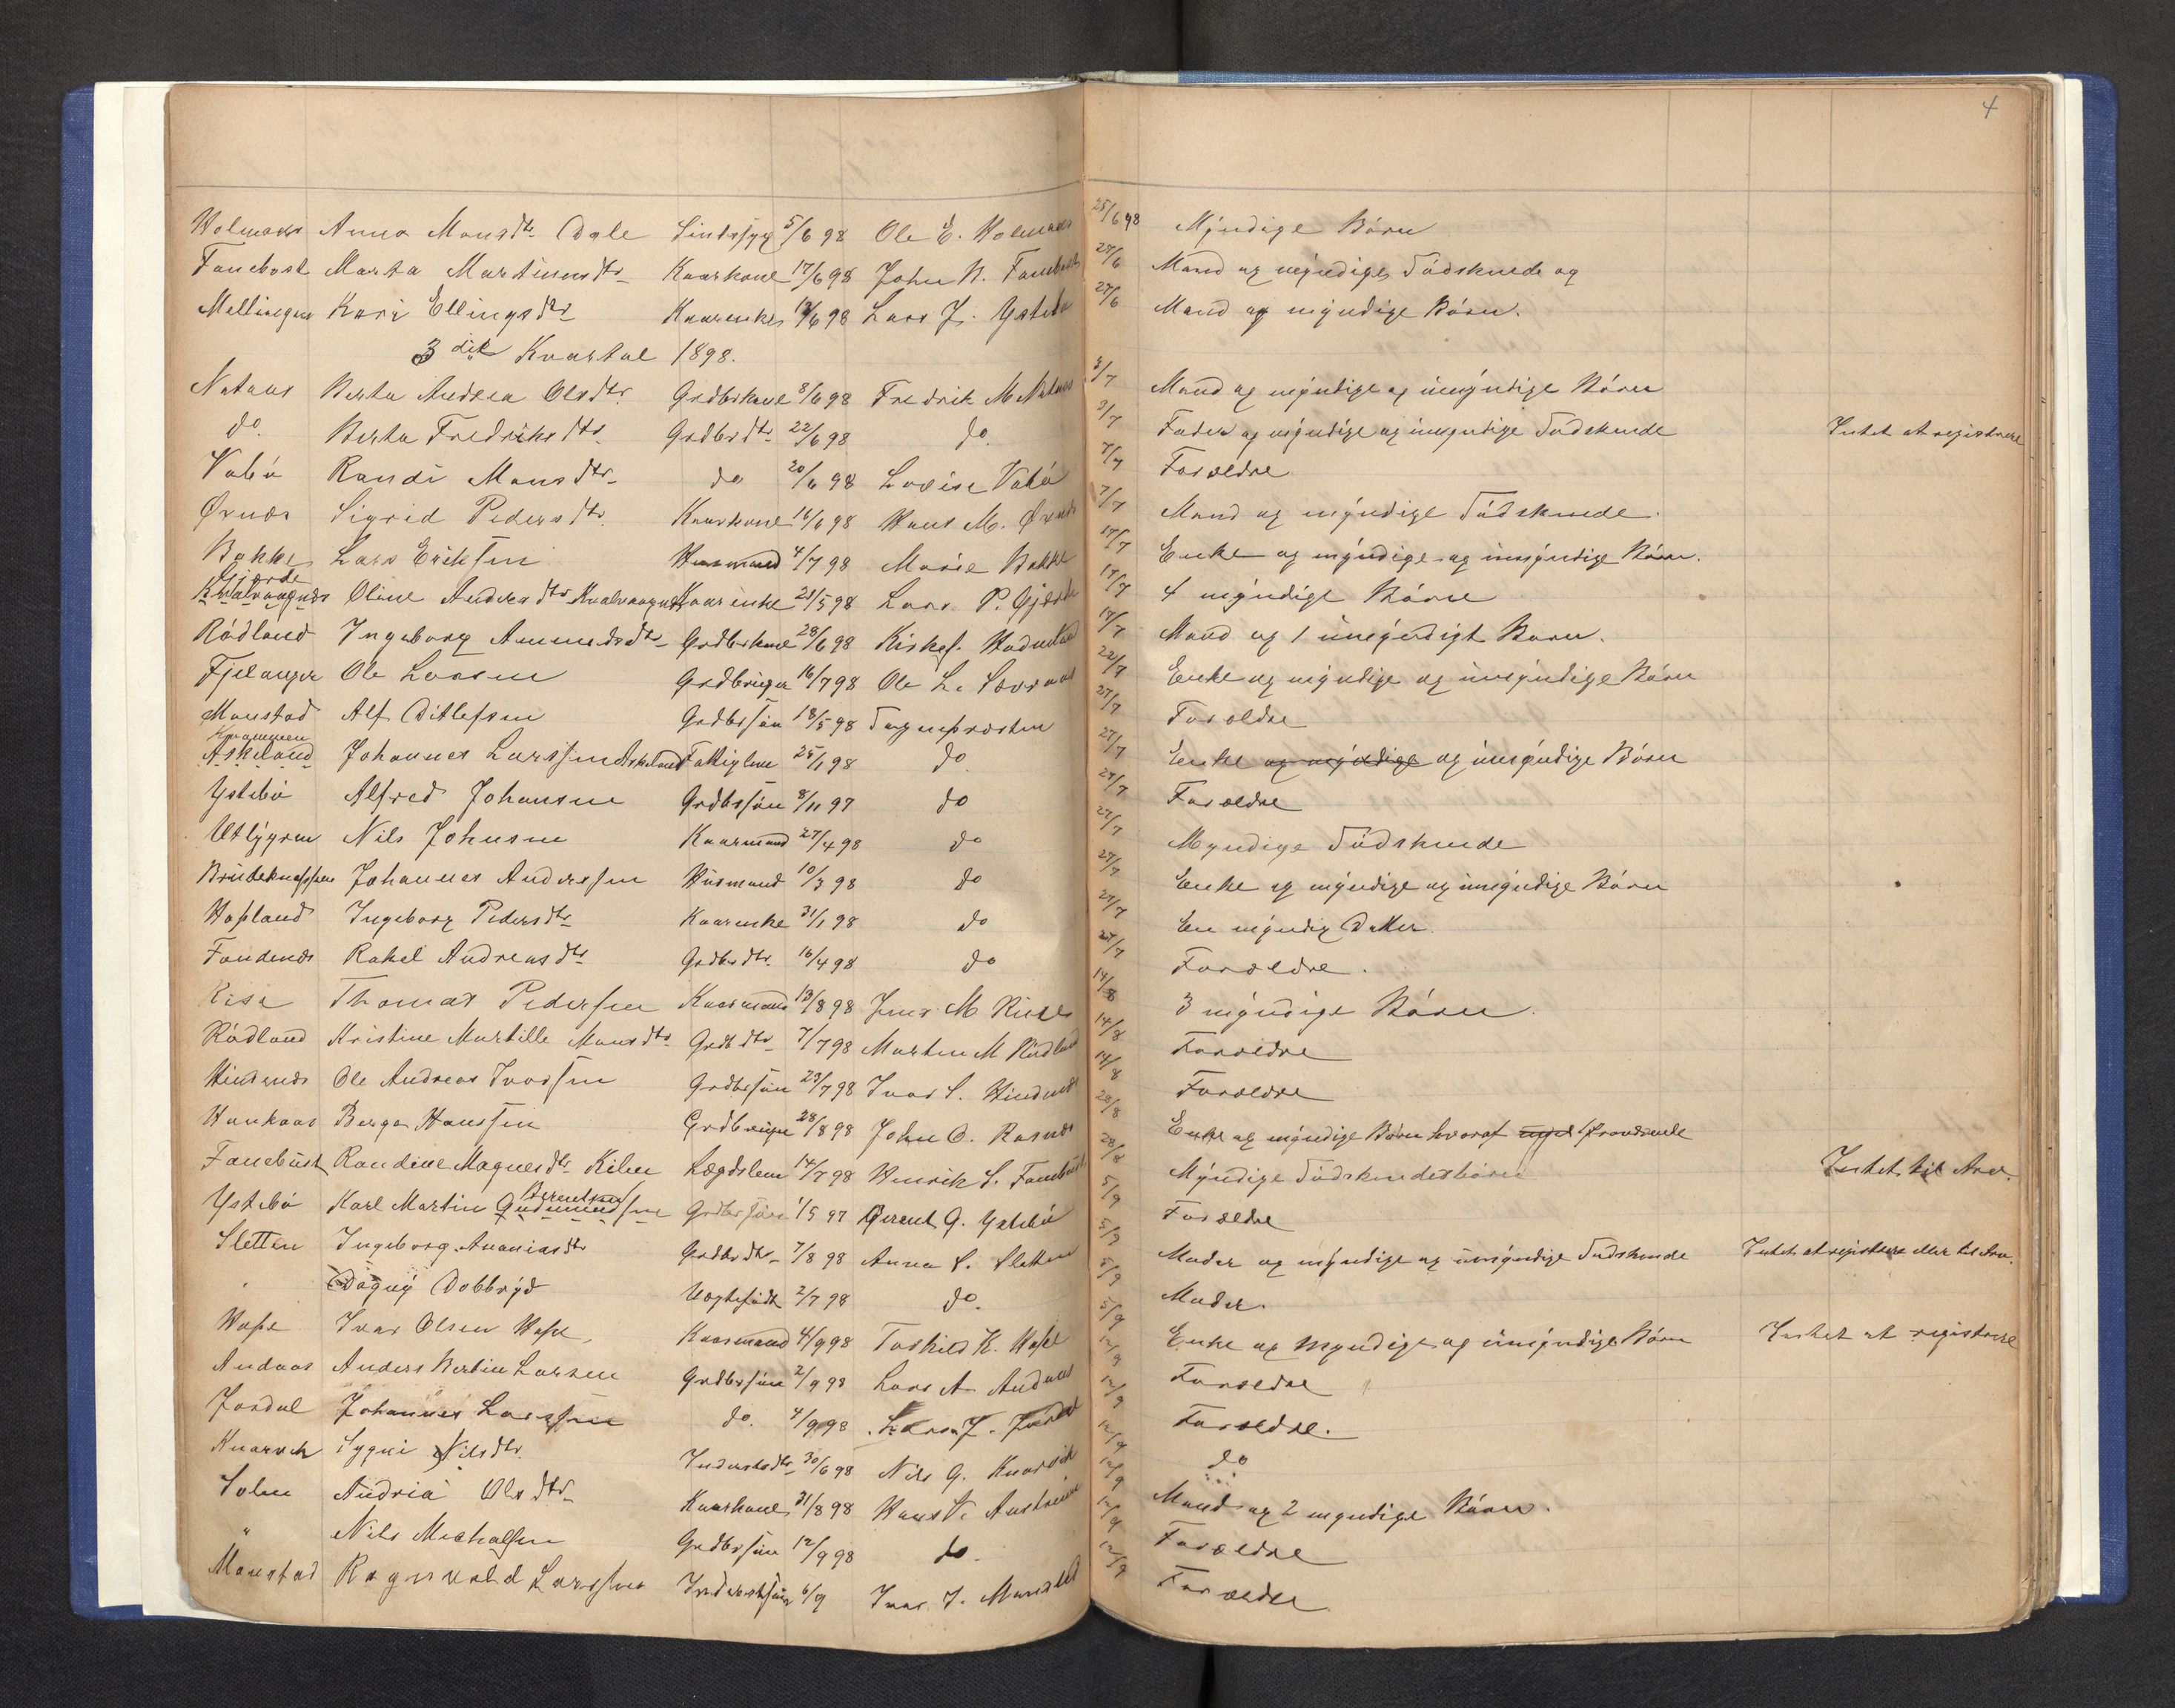 4
Holmaas Anna Monsdtr. Dale Sindssyg 5/6 98 Ole E. Holmaas 25/6 98 Myndige Børn
Fanebost Marta Martinusdtr Kaarkone 17/6 98 John N. Fanebost 27/6 Mand og myndige Södskende og
Mellingen Kari Ellingsdtr Kaarenke 98 Lars J. Ystebö 27/6 Mand og myndige Börn.
3die Kvartal 1898.
Nataas Berta Andrea Olsdtr. Grdbrkone 8/6 98 Fredrik M Nataas 3/7 Mand og myndige og umyndige Börn
do. Berta Fredriksdtr. Grdbrdtr. 22/6 98 do. 3/7 Fader og myndige og umyndige Södskende Intet at registrere
Vabö Randi Monsdtr. do 20/6 98 Lovise Vabö 7/7 Forældre
Örnæs Sigrid Pedersdtr. Kaarkone 16/6 98 Hans M. Örnæs 7/7 Mand og myndige Södskende.
Bakke Lars Eriksen Husmand 4/7 98 Marie Bakke 17/7 Enke og myndige og umyndige Börn.
Gjerde
Kvalvaagnæs Oline Andersdtr Kvalvaagnæs Kaarenke 21/5 98 Lars P. Gjerde 17/7 4 myndige Börn
Rödland Ingeborg Ammundsdtr Grdbrkone 28/6 98 Hodneland 17/7 Mand og 1 umyndigt Barn.
Fjelanger Ole Larsen Grdbruger 16/7 98 Ole L. 22/7 Enke og myndige og umyndige Börn
Monstad Alf Ditlefsen Grdbrsön 18/5 98 Sogneprœsten 27/7 Forældre
Kvammen
Askeland Johannes Larssen Askeland Fattiglem 25/1 98 do. 27/7 Enke og myndige og umyndige Börn
Ystebö Alfred Johansen Grdbrsön 8/11 97 do 27/7 Forældre
Utlygren Nils Johnsen Kaarmand 27/4 98 do 27/7 Myndige Södskende
Brudeknappen Johannes Anderssen Husmand 10/3 98 do 27/7 Enke og myndige og umyndige Börn
Hopland Ingeborg Pedersdtr Kaarenke 31/1 98 do 27/7 En myndig Datter.
Fondenæs Rakel Andreasdtr Grdbrdtr. 16/4 98 do 27/7 Forældre.
Risa Thomas Pedersen Kaarmand 13/8 98 Jens M 14/8 3 myndige Börn.
Rödland Kristine Martille Monsdtr. Grdbdtr. 7/7 98 Martin M Rödland 14/8 Forældre
Hindenæs Ole Andreas Ivarsen Grdbrsön 23/7 98 Ivar S. Hindenæs 14/8 Forældre
Hankaas Berge Hanssen Grdbruger 28/8 98 John O. Rasnæs 28/8 Enke og myndige Börn hvoraf
Fanebust Randine Magnesdtr. Kilen Lægdslem 14/7 98 Henrik S. Fanebust 28/8 Myndige Södskendesbörn Intet til Arv.
Berentsen
Ystebö Karl Martin Gudmundsen Grdbrsön 1/5 97 Berent G. Ystebö 5/9 Forældre
Sletten Ingeborg Ananiasdtr Grdbrdtr. 7/8 98 Anna S. Sletten 5/9 Moder og myndige og umyndige Södskende Intet at registrere eller til Arv.
" Dagny Dobbryd Uægtefödt 2/7 98 do. 5/9 Moder.
Hope Ivar Olsen Hope. Kaarmand 4/9 98 Torkild K. Hope 5/9 Enke og myndige og umyndige Börn Intet at registrere
Andaas Anders Bertin Larsen Grdbrsön 2/9 98 Lars A. Andaas 12/9 Forældre
Jordal Johannes Larssen do. 4/9 98 Lars J. Jordal 12/9 Forældre.
Knarvik Sygni Nilsdtr. Inderstsdtr. 30/6 98 Nils G. Knarvik 12/9 do
Solem Andria Olsdtr. Kaarkone 31/8 98 Hans V. Austrheim 12/9 Mand og 2 myndige Börn.
" Nils Michalsen Grdbrsön 12/9 98 do. 12/9 Forældre
Monstad Ragnvald Larssen Inderstsön 6/9 Ivar J. Monstad 12/9 Forældre